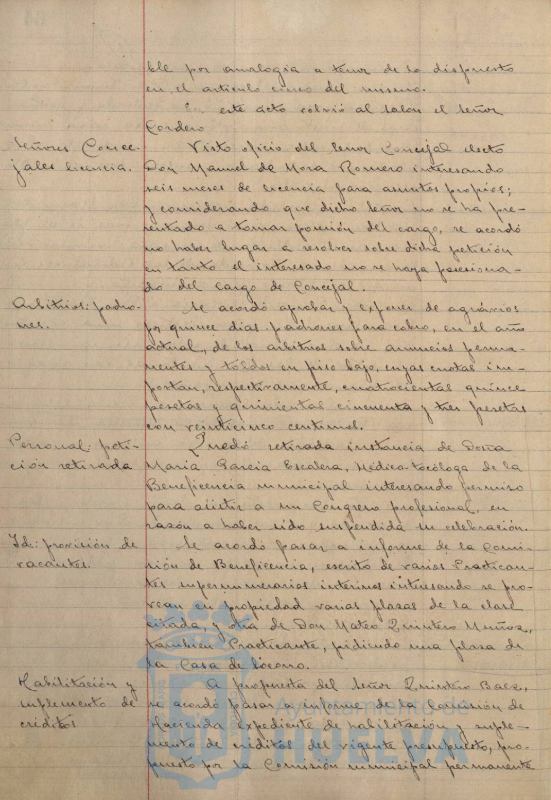 ble por analogia a tenor de lo dispuesto
en el articulo cinco del mismo.
En este acto volvió al salon el señor
Cordero
Señores Conce-
jales licencia.
Visto oficio del Señor Concejal electo
Don Manuel de Mora Romero interesando
seis meses de licencia para asuntos propios;
y considerando que dicho señor no se ha pre-
sentado a tomar posesión del cargo, se acordó
no haber lugar a resolver sobre dicha petición
en tanto el interesado no se haya posesiona-
do del cargo de Concejal.
Arbitrios: padro-
nes.
Se acordó aprobar y exponer de agravios
por quince dias padrones para cobro, en el año
actual, de los arbitrios sobre anuncios perma-
nentes y toldos en piso bajo, cuyas cuotas im-
portan, respectivamente, cuatrocientas quince
pesetas y quinientas cincuenta y tres pesetas
con veinticinco centimos.
Personal: peti-
ción retirada
Quedó retirada instancia de Doña
Maria Garcia Escalera, Médico-tocóloga de la
Beneficencia municipal interesando permiso
para asistir a un Congreso profesional, en
razón a haber sido suspendida su celebración.
Id: provisión de
vacantes.
Se acordó pasar a informe de la Comi-
sión de Beneficencia, escrito de varios Practican-
tes supernumerarios interinos interesando se pro-
vean en propiedad varias plazas de la clase
citada, y otra de Don Mateo Quintero Muñoz,
tambien Practicante, pidiendo una plaza de
la Casa de Socorro.
Habilitación y
suplemento de
créditos
A propuesta del Señor Quintero Baez,
se acordó pasar a informe de la Comisión de
Hacienda expediente de habilitación y suple-
mento de créditos del vigente presupuesto, pro-
puesto por la Comisión municipal permanente
Ayuntamiento de
HUELVA